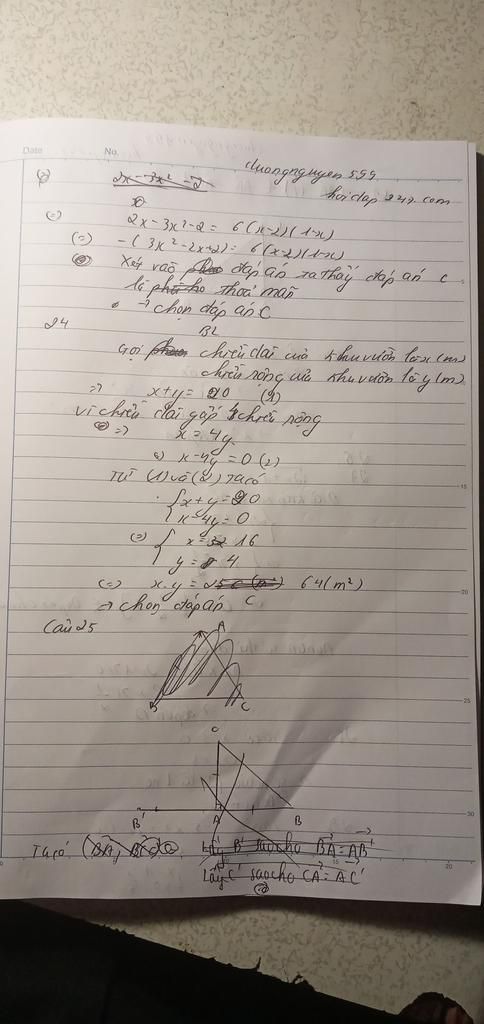 Date No.
duongnguyen 599
hoidap247.com
2x-3x²-2
(=) 2x-3x²-2 = 6(x-2)(1-x)
(=) -(3x²-2x+2) = 6(x-2)(1-x)
Xét vào đáp án ta thấy đáp án C
là thoả mãn
→ chọn đáp án C
24 BL
Gọi chiều dài của khu vườn là x (m)
chiều rộng của khu vườn là y (m)
=> x+y = 20 (1)
vì chiều dài gấp 4 chiều rộng
=> x = 4y
(=) x-4y = 0 (2)
Từ (1) và (2) ta có
{ x+y = 20
x-4y = 0
(=) { x = 16
y = 4
(=) x.y = 64 (m²)
=> chọn đáp án C
Câu 25
A
B C
C
B' A B
Ta có Lấy B' sao cho BA = AB'
Lấy C' sao cho CA = AC'
15
20
25
30
15
20